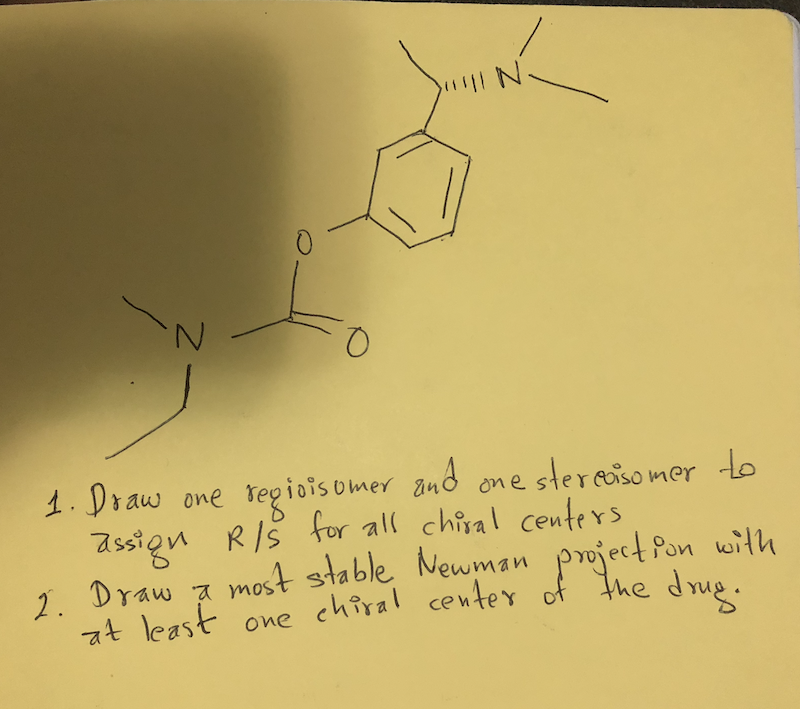 N
O
N
O
1. Draw one regioisomer and one stereoisomer to
assign R/S for all chiral centers
2. Draw a most stable Newman projection with
at least one chiral center of the drug.